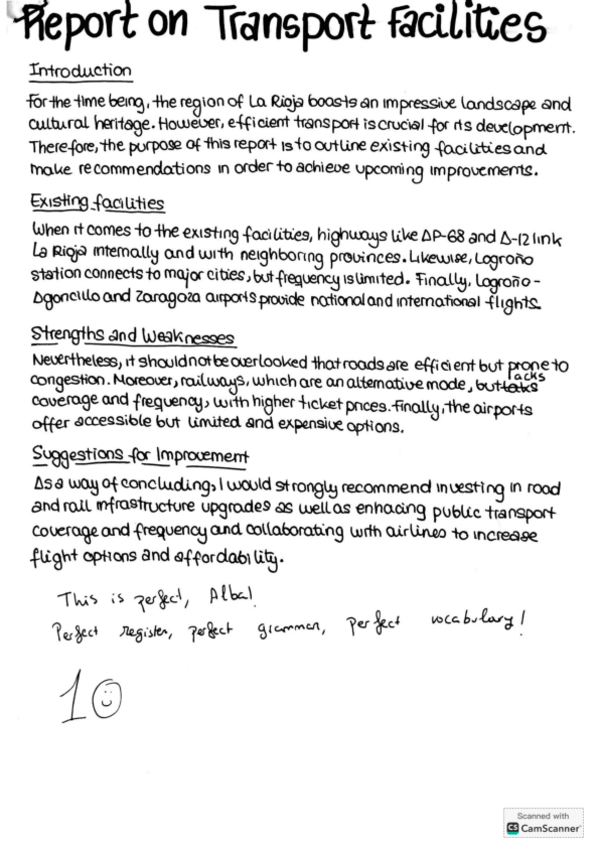 Report on Transport Facilities
Introduction
For the time being, the region of La Rioja boasts an impressive landscape and
cultural heritage. However, efficient transport is crucial for its development.
Therefore, the purpose of this report is to outline existing facilities and
make recommendations in order to achieve upcoming improvements.
Existing facilities
When it comes to the existing facilities, highways like AP-68 and A-12 link
La Rioja internally and with neighboring provinces. Likewise, Logroño
station connects to major cities, but frequency is limited. Finally, Logroño-
Agoncillo and Zaragoza airports provide national and international flights.
Strengths and Weaknesses
Nevertheless, it should not be overlooked that roads are efficient but prone to
congestion. Moreover, railways, which are an alternative mode, but lacks
coverage and frequency, with higher ticket prices. Finally, the airports
offer accessible but limited and expensive options.
Suggestions for Improvement
As a way of concluding, I would strongly recommend investing in road
and rail infrastructure upgrades as well as enhacing public transport
coverage and frequency and collaborating with airlines to increase
flight options and affordability.
This is perfect, Alba!
Perfect register, perfect grammar, perfect vocabulary!
10
Scanned with
CS CamScanner